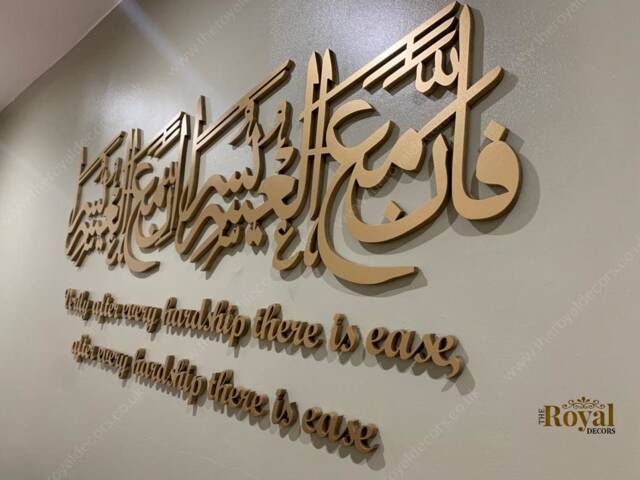 فإن مع العسر يسرا إن مع العسر يسرا
Verily after every hardship there is ease,
after every hardship there is ease
THE Royal
DECORS
www.theroyaldecors.co.uk